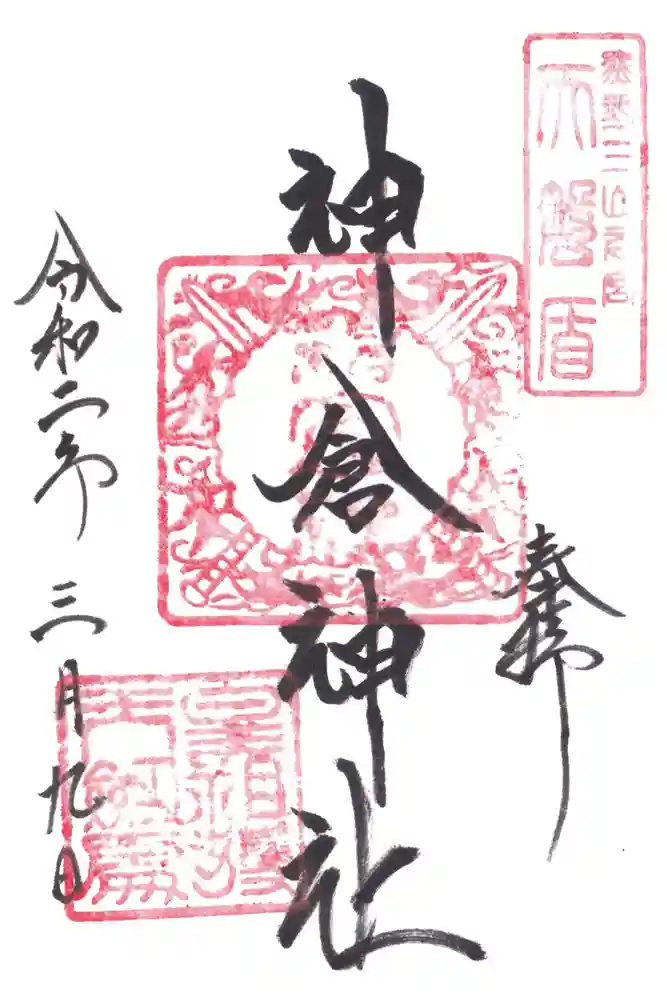 熊野三山元宮
天磐盾
奉拝
神倉神社
令和二年三月九日